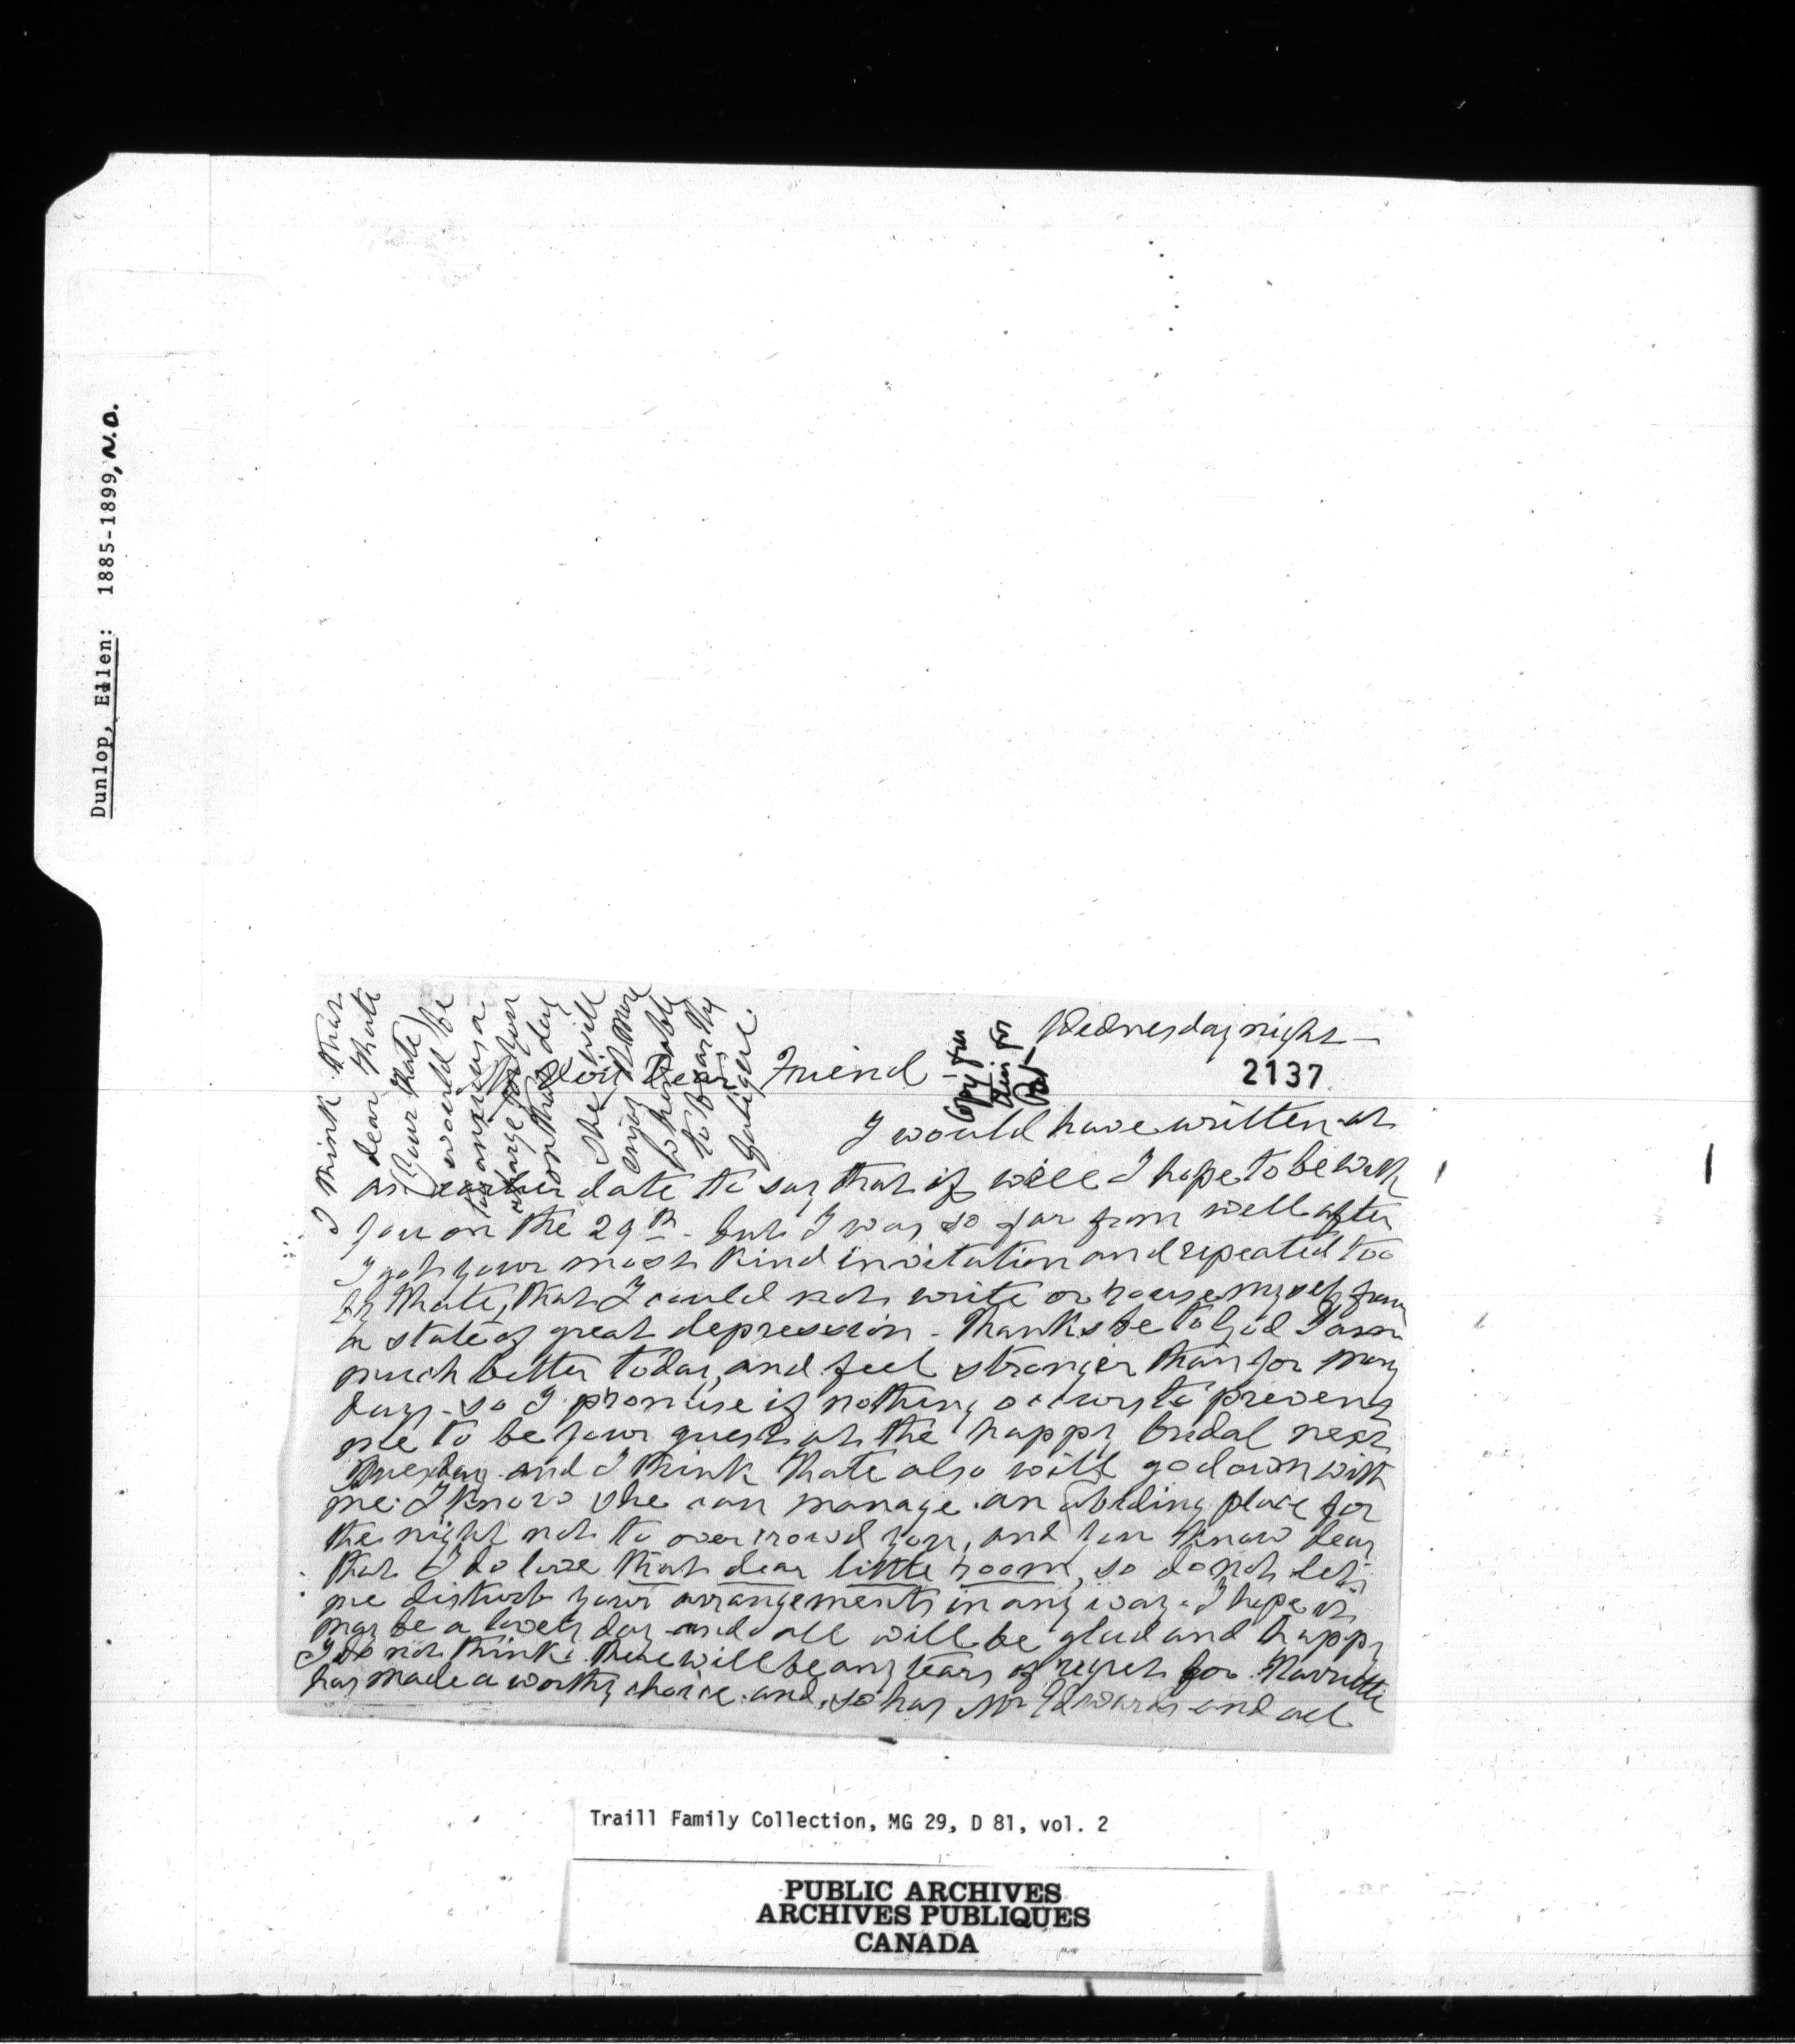 Dunlop, Ellen: 1885-1899, N.D.
Wednesday night —
2137
My Dear Friend —
I would have written at
an earlier date to say that if well I hope to be with
you on the 29th - but I was so far from well after
I got your most kind invitation and repeated too
by Kate, that I could not write or rouse myself from
a state of great depression - Thanks be to God I am
much better today, and feel stronger than for many
days - so I promise if nothing occurs to prevent
me to be your guest at the happy bridal next
Tuesday and I think Kate also will go down with
me. I know she can manage an abiding place for
the night not to overcrowd you, and you know dear
that I do love that dear little room, so do not let
me disturb your arrangements in any way. I hope it
may be a lovely day and all will be glad and happy
I do not think there will be any tears of regret for Harriette
has made a worthy choice and so has Mr Edwards and all
I think that
dear Kate
(your Kate)
would be
too anxious a
charge for you
on that day
She will
enjoy it more
to be able
to bear the
fatigue.
Traill Family Collection, MG 29, D 81, vol. 2
PUBLIC ARCHIVES
ARCHIVES PUBLIQUES
CANADA